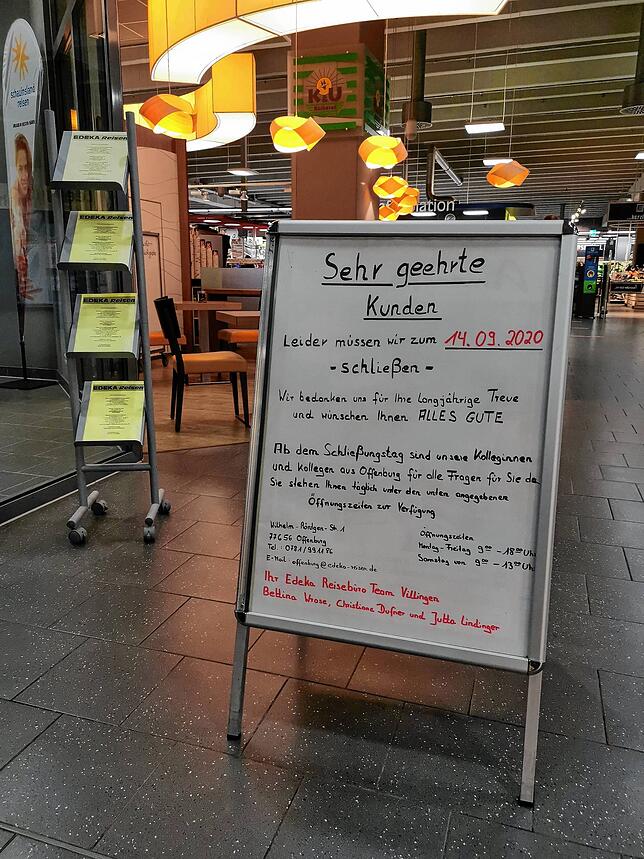 schauinsland
reisen
EDEKA Reisen
EDEKA Reisen
EDEKA Reisen
EDEKA Reisen
K&U
Bäckerei
mation
Sehr geehrte
Kunden
Leider müssen wir zum 14.09.2020
- schließen -
Wir bedanken uns für Ihre langjährige Treue
und wünschen Ihnen ALLES GUTE
Ab dem Schließungstag sind unsere Kolleginnen
und Kollegen aus Offenburg für alle Fragen für Sie da
Sie stehen Ihnen täglich unter den unten angegebenen
Öffnungszeiten zur Verfügung
Wilhelm-Röntgen-Str. 1
77656 Offenburg
Tel.: 0781/991186
E-Mail: offenburg@edeka-reisen.de
Öffnungszeiten
Montag-Freitag 9⁰⁰ - 18⁰⁰ Uhr
Samstag von 9⁰⁰ - 13⁰⁰ Uhr
Ihr Edeka Reisebüro Team Villingen
Bettina Wrose, Christiane Dufner und Jutta Lindinger